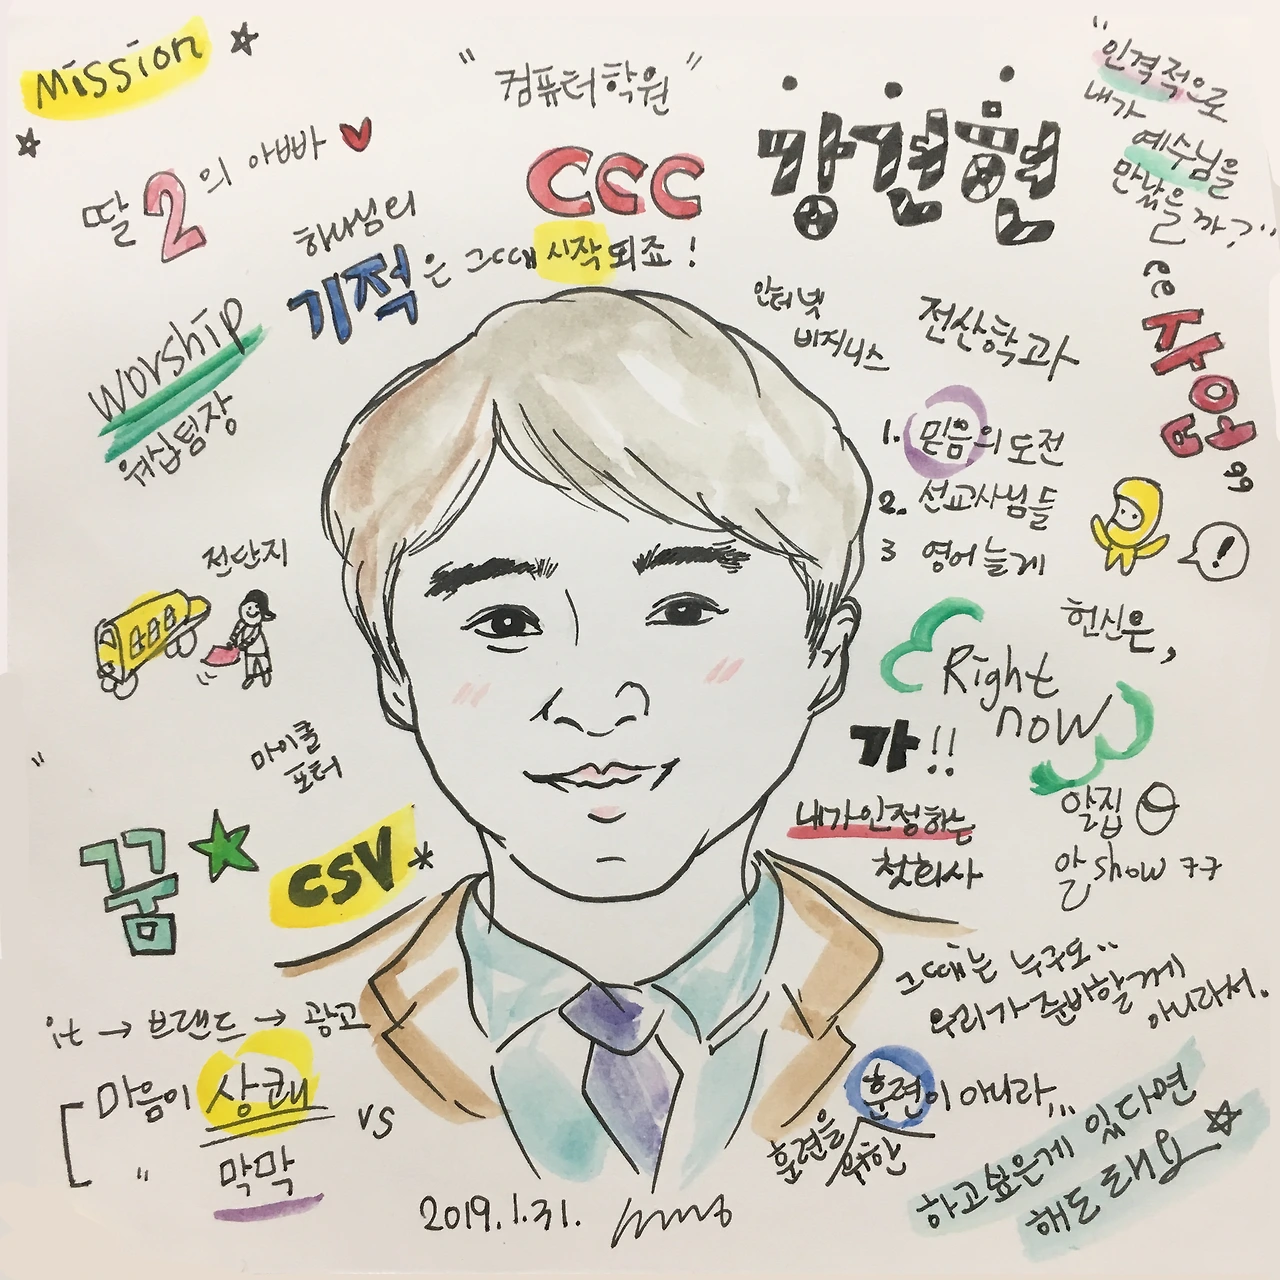 Mission
"컴퓨터학원"
"인격적으로
내가
예수님을
만났을까?"
딸 2의 아빠
CCC
하나님의
기적은 그때 시작되죠!
인터넷
비지니스
전산학과
사업
Worship
워십팀장
1. 믿음의 도전
2. 선교사님들
3 영어 늘게
전단지
!
헌신은,
Right
now
가!!
마이클
포터
내가 인정하는
첫회사
알집
알 show ㅋㅋ
꿈
CSV*
그때는 누구도..
우리가 준비할게
아니라서.
it → 브랜드 → 광고
마음이 상쾌
vs
" 막막
훈련이 아니라...
훈련을
위한
하고싶은게 있다면
해도 돼요
2019.1.31.